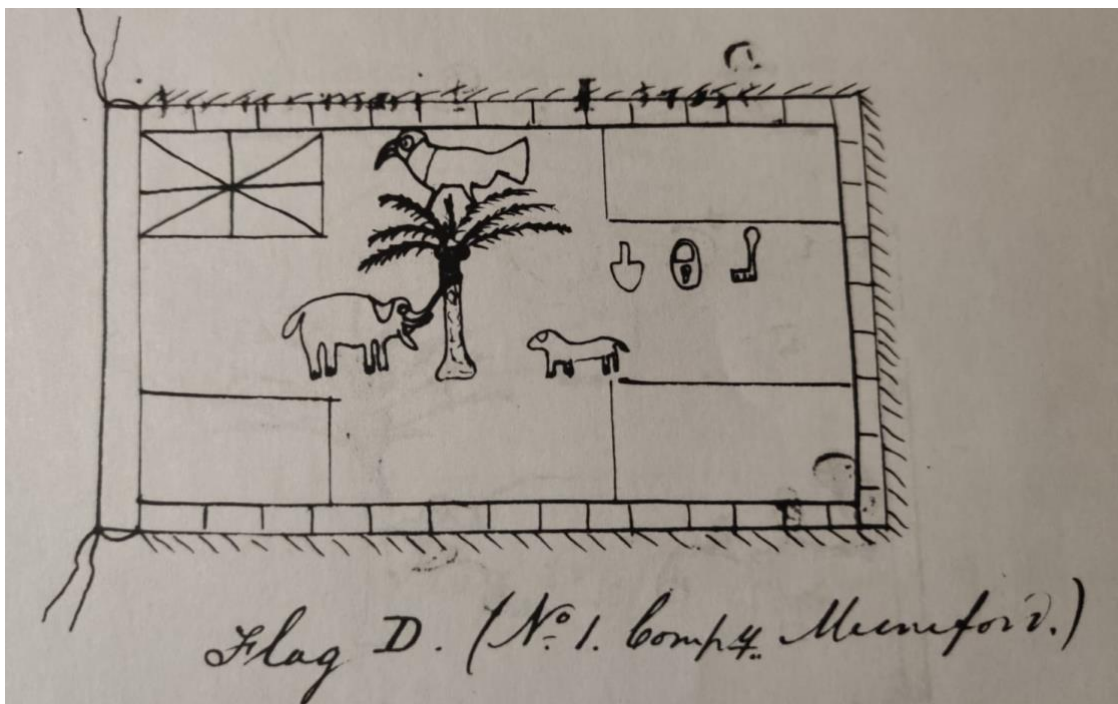 Flag D. (No. 1. Compy. Mumford.)